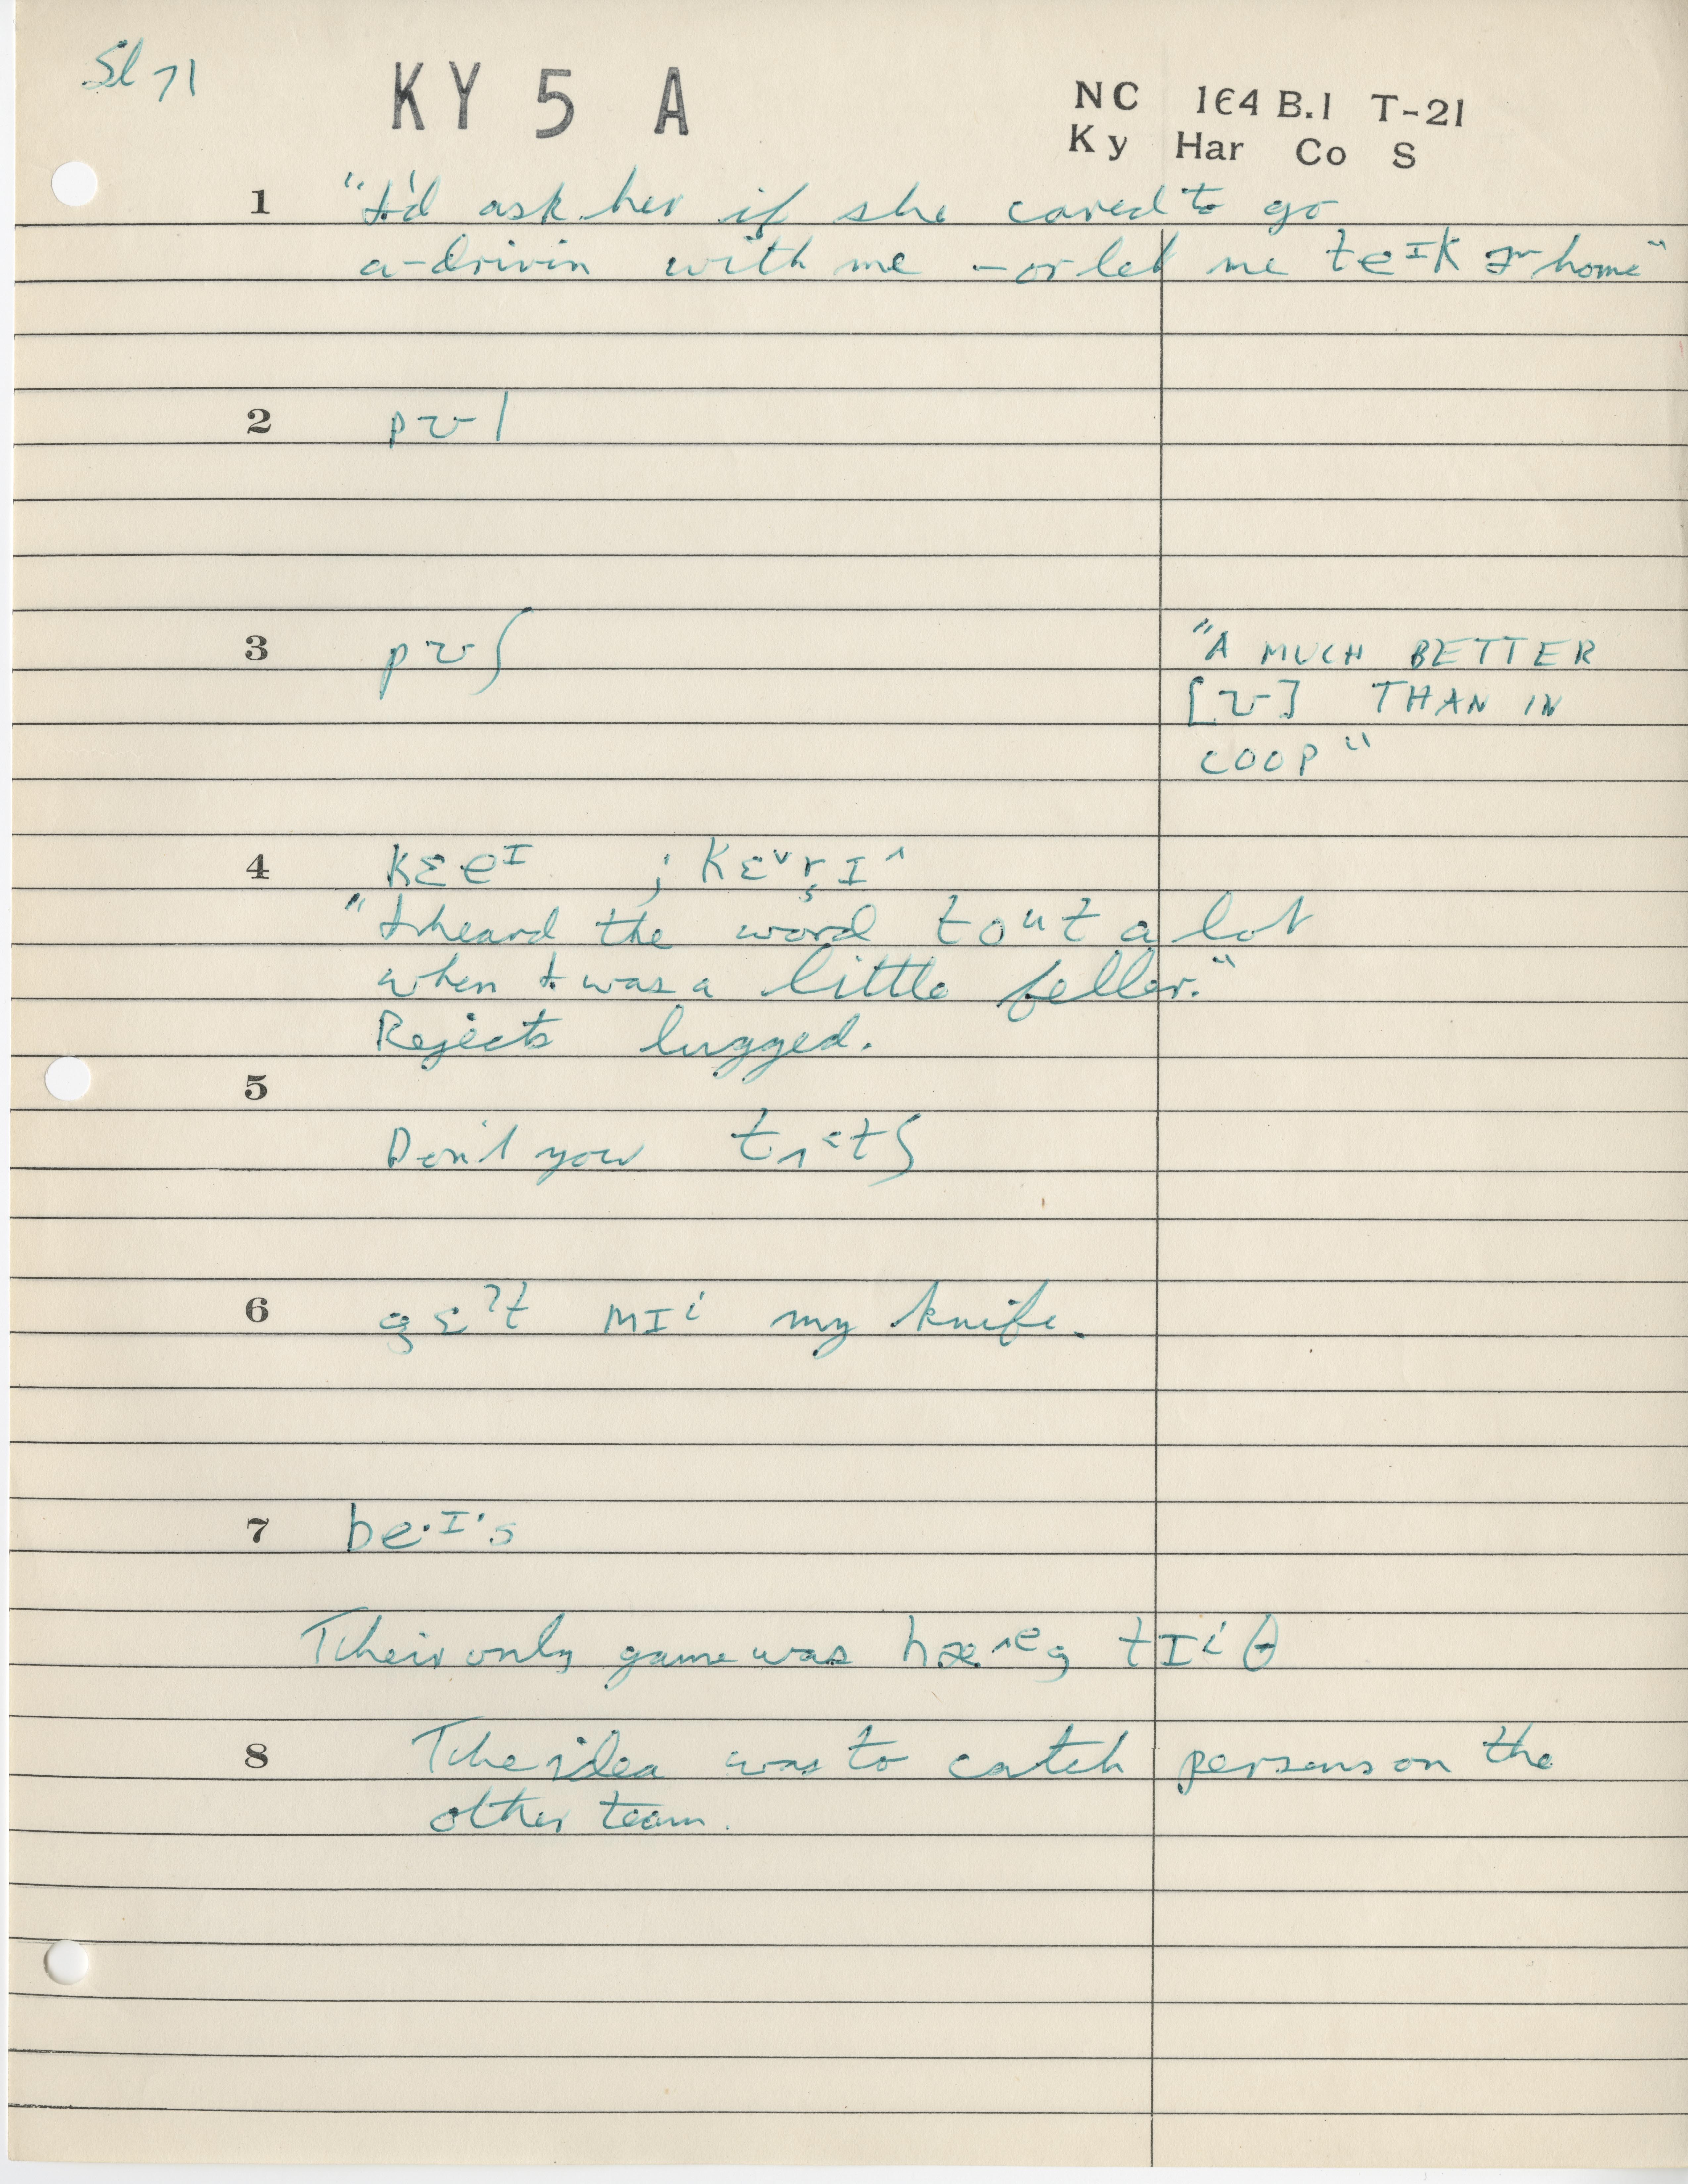 Sl 71
KY 5 A
NC 164 B.1 T-21
Ky Har Co S
1 "I'd ask her if she cared to go
a-drivin with me – or let me teᶦk ɚ home"
2 pʊl
3 pʊʃ
"A MUCH BETTER
[ʊ] THAN IN
COOP"
4 kɛeᶦ ; kɛ˅r̜ɪ˄
"I heard the word toᵘt a lot
when I was a little feller."
Rejects lugged.
5
Don't you tʌ˂tʃ
6 gɛˀt mɪⁱ my knife.
7 be·ɪ·s
Their only game was hæ˄ᵉg tɪⁱθ
8 The idea was to catch persons on the
other team.